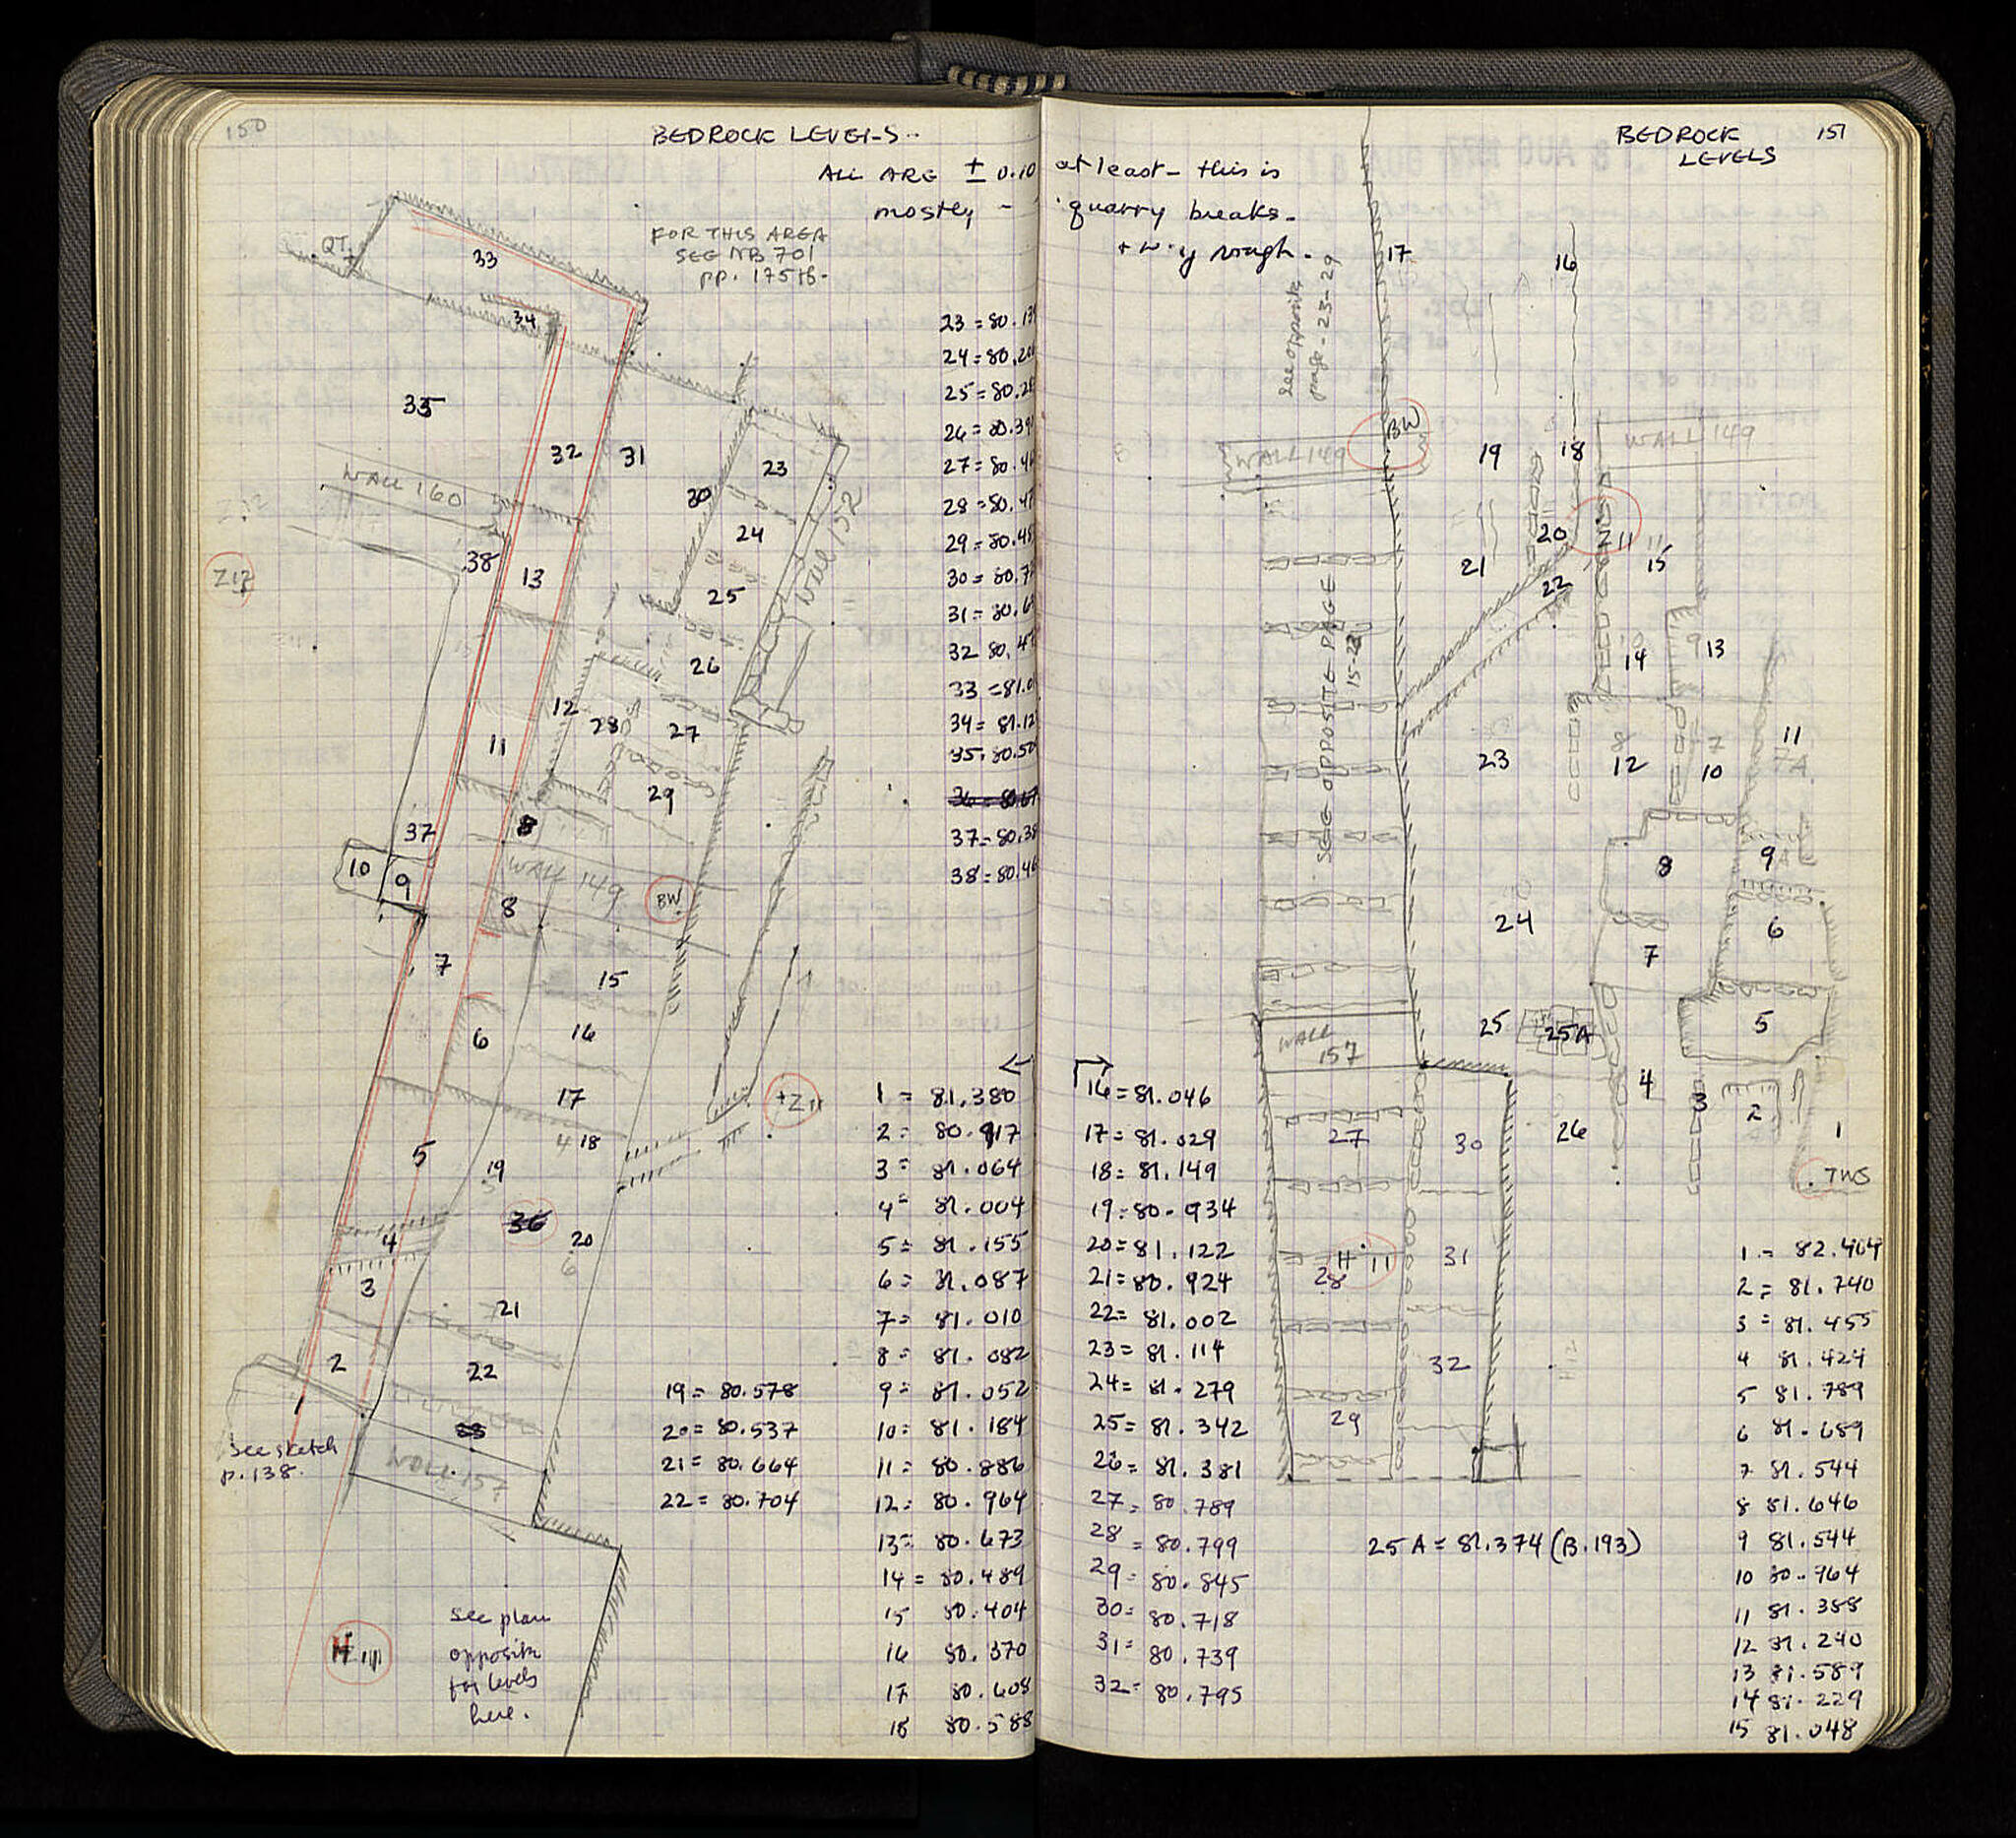 150
BEDROCK LEVELS -
ALL ARE ± 0.10
mostly -
FOR THIS AREA
SEE NB 701
pp. 175 ff.
QT.
33
34
35
32
31
23
30
24
WALL 160
WALL 152
Z12
38
13
25
26
12
28
27
11
29
37
8
10
9
WALL 149
BW
8
7
15
6
16
17
Z11
18
5
19
36
20
4
3
21
2
22
1
WALL 157
See sketch
p. 138.
H 11
see plan
opposite
for levels
here.
23 = 80.13
24 = 80.20
25 = 80.28
26 = 80.39
27 = 80.4
28 = 80.47
29 = 80.48
30 = 80.7
31 = 80.6
32 80.47
33 = 81.0
34 = 81.12
35 = 80.50
36 = 80.67
37 = 80.38
38 = 80.46
1 = 81.380
2 = 80.917
3 = 81.064
4 = 81.004
5 = 81.155
6 = 81.087
7 = 81.010
8 = 81.082
9 = 81.052
10 = 81.184
11 = 80.886
12 = 80.964
13 = 80.673
14 = 80.489
15 80.404
16 80.370
17 80.608
18 80.588
19 = 80.578
20 = 80.537
21 = 80.664
22 = 80.704
BEDROCK 151
LEVELS
at least - this is
quarry breaks -
rough.
see opposite
page - 23-29
17
16
WALL 149
BW
19
18
WALL 149
20
Z11
15
21
22
SEE OPPOSITE PAGE
15-23
14
13
23
12
10
11
7A
8
9
24
7
6
25
25A
5
WALL
157
4
3
2
1
27
30
26
TWS
H 11
28
31
32
29
16 = 81.046
17 = 81.029
18 = 81.149
19 = 80.934
20 = 81.122
21 = 80.924
22 = 81.002
23 = 81.114
24 = 81.279
25 = 81.342
26 = 81.381
27 = 80.789
28 = 80.799
29 = 80.845
30 = 80.718
31 = 80.739
32 = 80.795
25 A = 81.374 (B.193)
1 = 82.464
2 = 81.740
3 = 81.455
4 81.424
5 81.789
6 81.689
7 81.544
8 81.646
9 81.544
10 80.964
11 81.388
12 81.240
13 81.589
14 81.229
15 81.048